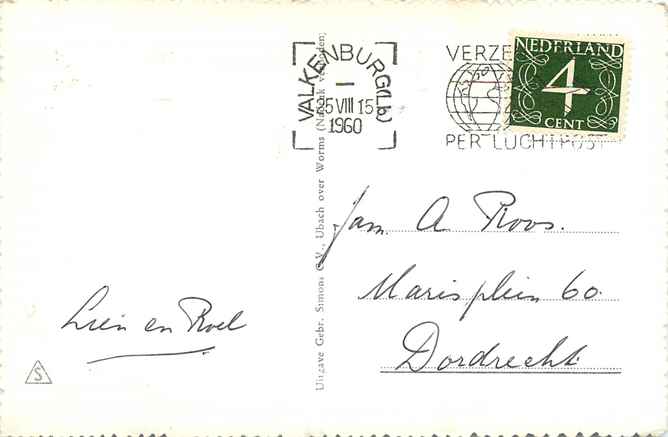 VALKENBURG (Lb.)
5 VIII 15
1960
VERZE
PER LUCHTPOST
NEDERLAND
4
CENT
Uitgave Gebr. Simons C.V., Ubach over Worms
fam. A Roos.
Marisplein 60.
Dordrecht
Lien en Roel
S